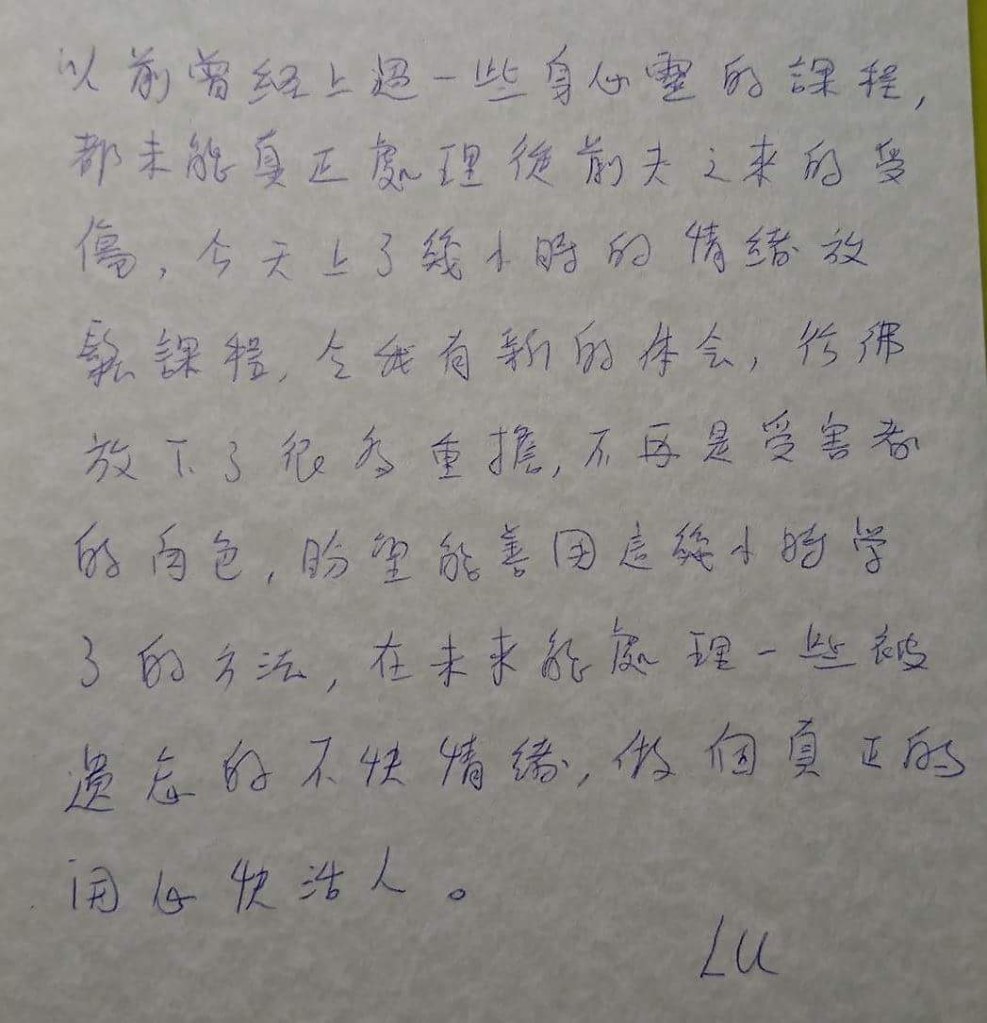 以前曾經上過一些身心靈的課程,
都未能真正處理從前夫之來的受
傷, 今天上了幾小時的情緒放
鬆課程, 令我有新的体会, 彷彿
放下了很多重擔, 不再是受害者
的角色, 盼望能善用這幾小時学
了的方法, 在未來能處理一些被
遺忘的不快情緒, 做個真正的
用心快活人。
LU